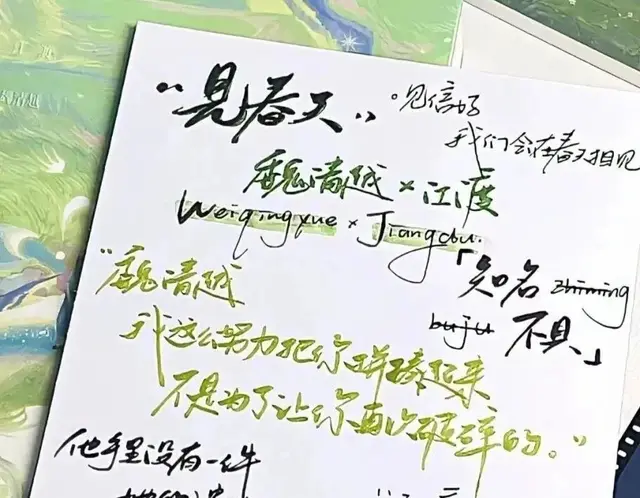 "见春天"
见信好
我们会在春天相见
魏清越×江渡
Weiqingyue × Jiangdu.
「知名 zhiming
buju 不具」
"魏清越
我这么努力把你拼凑起来
不是为了让你再次破碎的。"
他手里没有一件